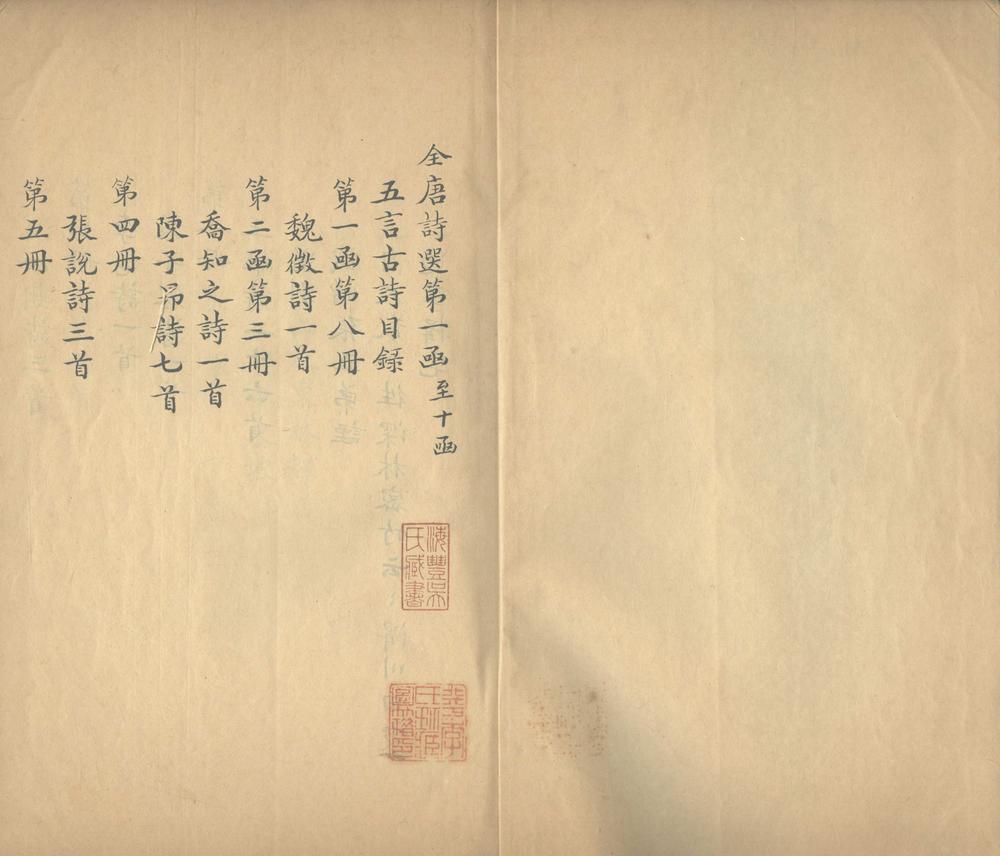 全唐詩選第一函至十函
五言古詩目録
第一函第八冊
魏徵詩一首
第二函第三冊
喬知之詩一首
陳子昂詩七首
第四冊
張說詩三首
第五冊
海豐吳氏臧書